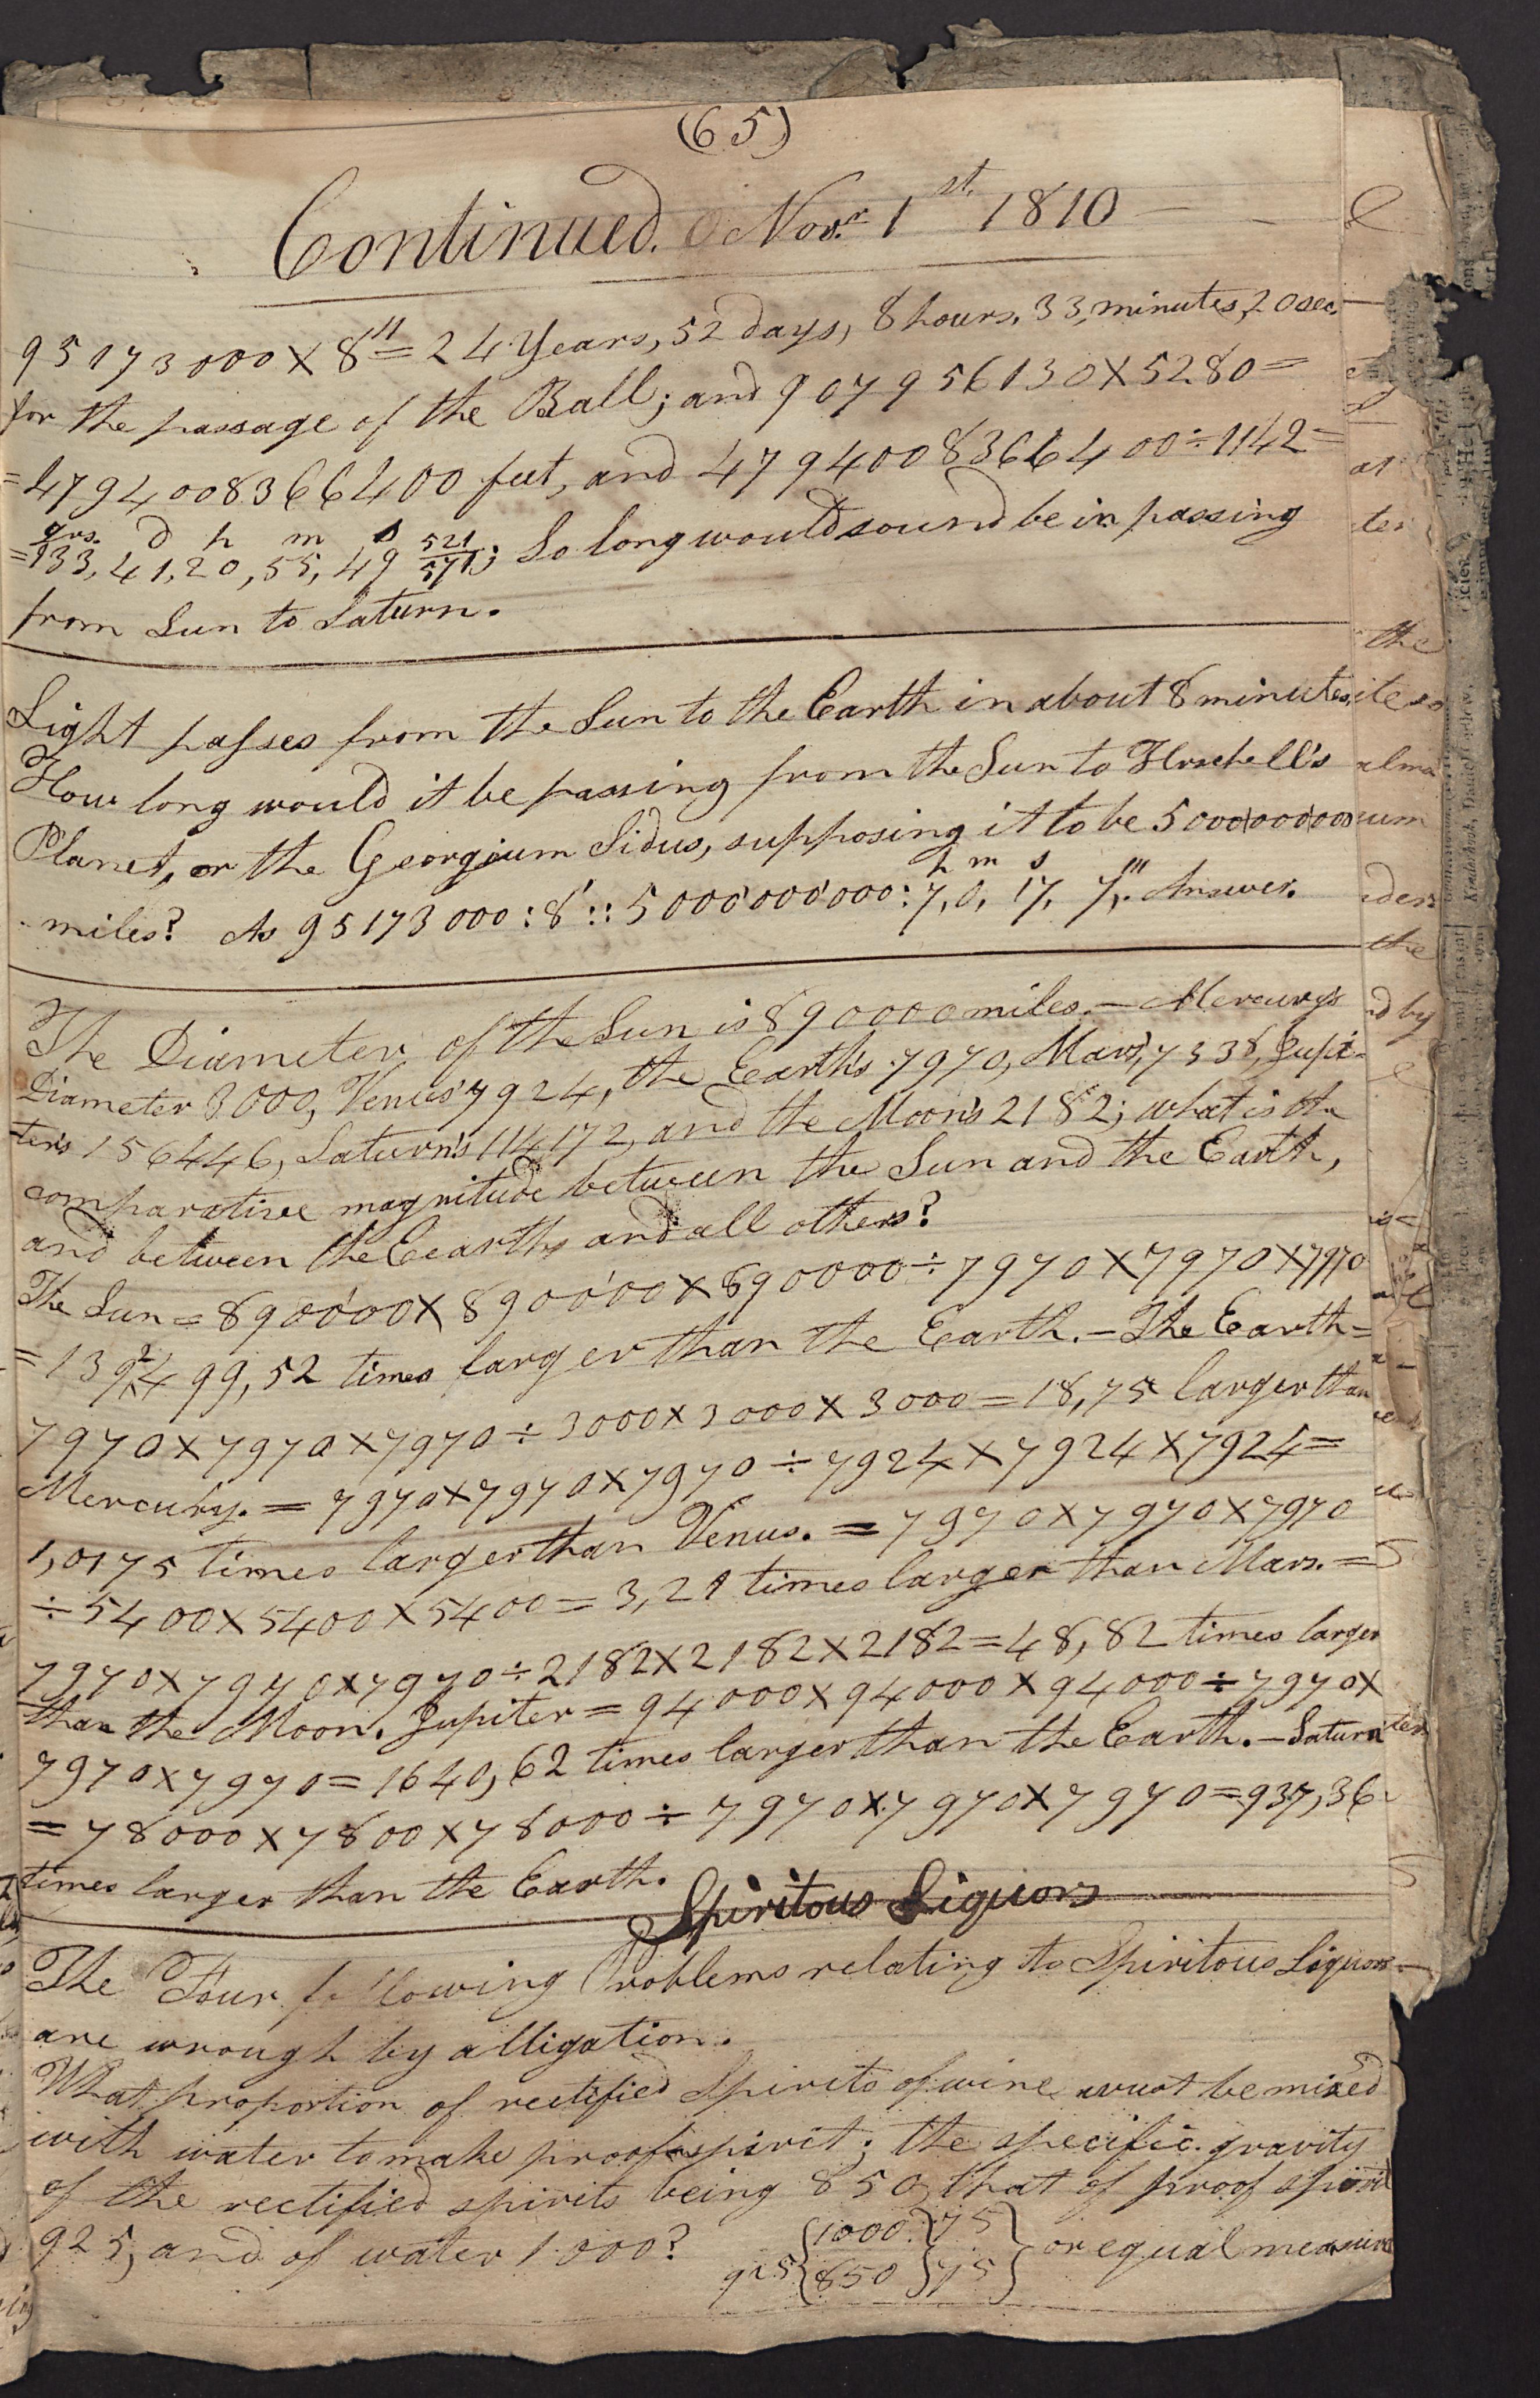 (65)
Continued. Novr. 1st. 1810
95173000 X 8''' = 24 Years, 52 days, 8 hours, 33, minutes, 20 sec.
for the passage of the Ball; and 907956130 X 5280 =
= 4794008366400 feet, and 4794008366400 ÷ 1142 =
yrs. d h m s
= 133, 41, 20, 55, 49 521/571; So long would sound be in passing
from Sun to Saturn.
Light passes from the Sun to the Earth in about 8 minutes,
How long would it be passing from the Sun to Herschell's
Planet, or the Georgium Sidus, supposing it to be 5000000000
h m s
miles? As 95173000 : 8' :: 5000'000'000 : 7, 0, 17, 7'''. Answer.
The Diameter of the Sun is 890000 miles. — Mercury's
Diameter 3000, Venus' 7924, the Earth's 7970, Mars', 7338, Jupi-
ter's 156446, Saturn's 114172, and the Moon's 2182; what is the
comparative magnitude between the Sun and the Earth,
and between the Eearth, and all others?
The Sun = 890'000 X 890'000 X 890000 ÷ 7970 X 7970 X 7970
= 1392499,52 times larger than the Earth. — The Earth =
7970 X 7970 X 7970 ÷ 3000 X 3000 X 3000 = 18,75 larger than
Mercury. = 7970 X 7970 X 7970 ÷ 7924 X 7924 X 7924 =
1,0175 times larger than Venus. = 7970 X 7970 X 7970
÷ 5400 X 5400 X 5400 = 3,21 times larger than Mars. =
7970 X 7970 X 7970 ÷ 2182 X 2182 X 2182 = 48,82 times larger
than the Moon. Jupiter = 94000 X 94000 X 94000 ÷ 7970 X
7970 X 7970 = 1640,62 times larger than the Earth. — Saturn
= 78000 X 7800 X 78000 ÷ 7970 X 7970 X 7970 = 937,36
times larger than the Earth.
Spiritous Liquors
The Four following Problems relating to Spiritous Liquors
are wrough by alligation.
What proportion of rectified Spirits of wine must be mixed
with water to make proof spirit; the specific gravity
of the rectified spirits being 850, that of proof spirit
925, and of water 1000?
925 {1000 } 75}
{850 } 75} or equal measure
the
um
the
by